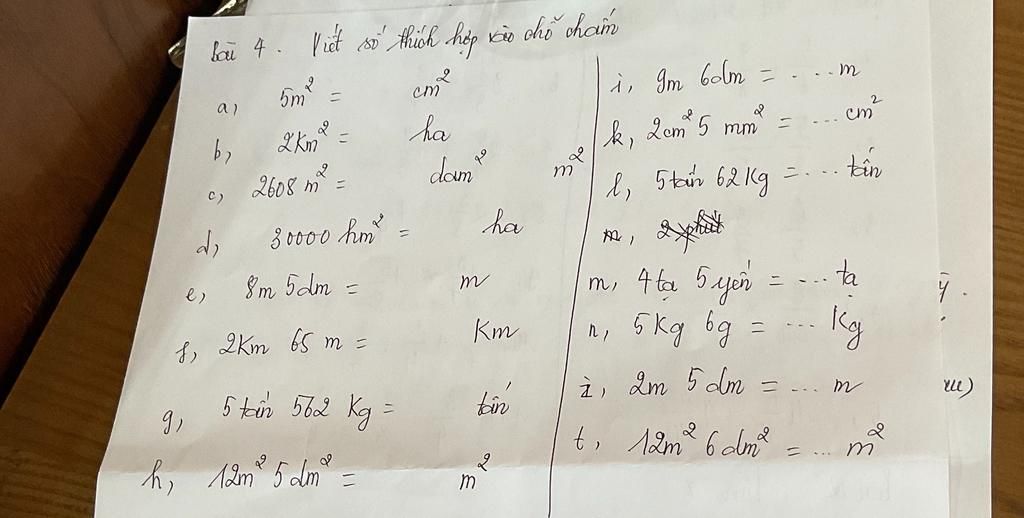 Bài 4. Viết số thích hợp vào chỗ chấm
a, 5m² = cm²
b, 2Km² = ha
c, 2608 m² = dam² m²
d, 30000 hm² = ha
e, 8m 5dm = m
f, 2Km 65 m = Km
g, 5 tấn 562 Kg = tấn
h, 12m² 5dm² = m²
i, 9m 6dm = .... m
k, 2cm² 5 mm² = ... cm²
l, 5 tấn 62 Kg = .... tấn
m, 4 tạ 5 yến = ... tạ
n, 5 Kg 6g = ... Kg
2m 5 dm = ... m
t, 12m² 6 dm² = ... m²